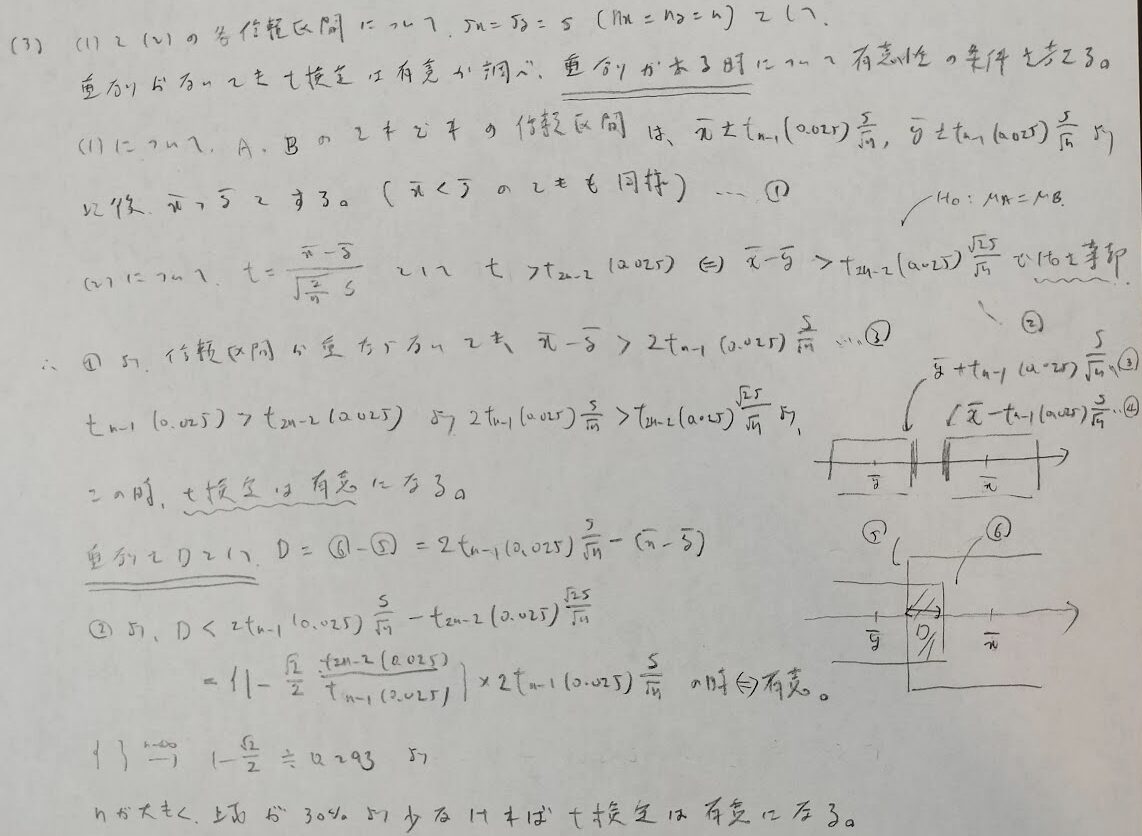 (3) (1)と(2)の各信頼区間について、sx = sy = s (nx = ny = n)として、
重なりがないとき t検定は有意か調べ、重なりがある時について有意性の条件を考える。
(1)について、A、Bのそれぞれの信頼区間は、x̄ ± t_{n-1}(0.025) s/√n, ȳ ± t_{n-1}(0.025) s/√n より
以後、x̄ > ȳ とする。(x̄ < ȳ のときも同様) … ①
H₀ : μA = μB.
(2)について、t = (x̄ - ȳ)/(√(2/n) s) として t > t_{2n-2}(0.025) ⇔ x̄ - ȳ > t_{2n-2}(0.025) √2s/√n でH₀を棄却
②
∴ ①より、信頼区間が重ならないとき、x̄ - ȳ > 2t_{n-1}(0.025) s/√n … ③
ȳ + t_{n-1}(0.025) s/√n … ③
t_{n-1}(0.025) > t_{2n-2}(0.025) より 2t_{n-1}(0.025) s/√n > t_{2n-2}(0.025) √2s/√n より、
x̄ - t_{n-1}(0.025) s/√n … ④
ȳ x̄
この時、t検定は有意になる。
重なりをDとして、D = ⑥ - ⑤ = 2t_{n-1}(0.025) s/√n - (x̄ - ȳ)
⑤ ⑥
②より、D < 2t_{n-1}(0.025) s/√n - t_{2n-2}(0.025) √2s/√n
ȳ D x̄
= {1 - √2/2 t_{2n-2}(0.025)/t_{n-1}(0.025)} × 2t_{n-1}(0.025) s/√n の時⇔有意。
{ } →(n→∞) 1 - √2/2 ≒ 0.293 より
nが大きく、が30%より少なければt検定は有意になる。